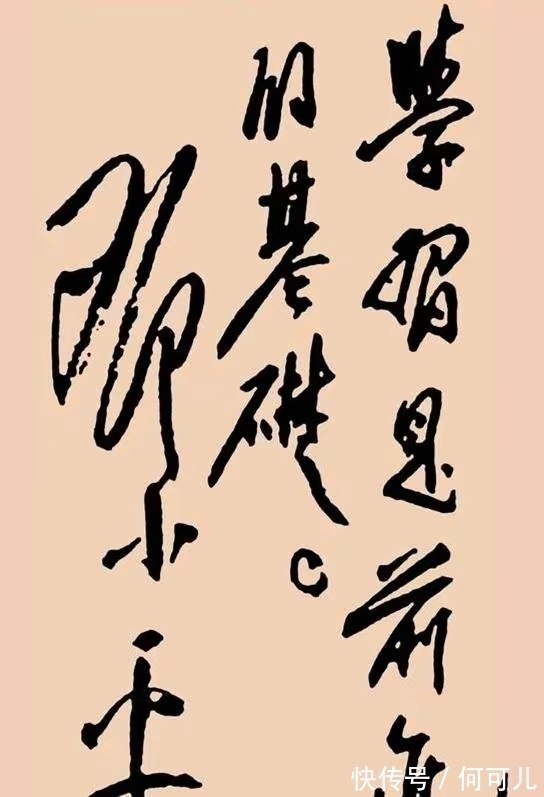 學習是前
的基礎。
鄧小平
快传号 / 何可儿